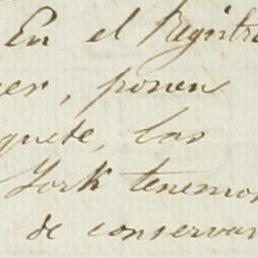 En el Registro
, ponen
las
York tenemos
de conservar